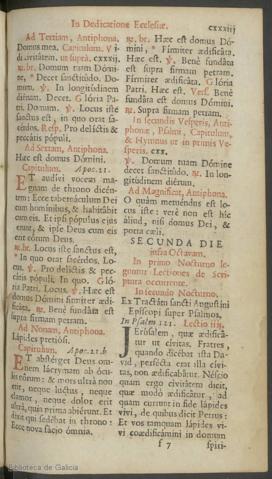 In Dedicatione Ecclesiæ.
cxxxiij
Ad Tertiam, Antiphona.
Domus mea. Capitulum. Vi
di civitatem. ut suprà. cxxxij.
℟. br. Domum tuam Dómi
ne, * Decet sanctitúdo. Do-
mum. ℣. In longitúdinem
diérum. Decet. Glória Pa-
tri. Domum. ℣. Locus iste
sanctus est, in quo orat sa-
cérdos. Resp. Pro delíctis &
peccátis pópuli.
Ad Sextam, Antiphona.
Hæc est domus Dómini.
Capitulum. Apoc. 21.
ET audívi vocem ma-
gnam de throno dicén-
tem: Ecce tabernáculum Dei
cum homínibus, & habitábit
cum eis. Et ipsi pópulus ejus
erunt, & ipse Deus cum eis
erit eórum Deus.
℟. br. Locus iste sanctus est,
* In quo orat sacérdos. Lo-
cus. ℣. Pro delíctis & pec-
cátis pópuli. In quo. Gló
ria Patri. Locus. ℣. Hæc est
domus Dómini fírmiter ædi-
ficáta. ℟. Benè fundáta est
supra firmam petram.
Ad Nonam, Antiphona.
Lápides pretiósi.
Capitulum. Apoc. 21. b
ET abstérget Deus om-
nem lácrymam ab ócu
lis eórum: & mors ultrà non
erit, neque luctus, neque
clamor, neque dolor erit
ultrà, quia prima abiérunt. Et
dixit qui sedébat in throno:
Ecce nova fácio ómnia.
℟. br. Hæc est domus Dómi-
ni, * Fírmiter ædificáta.
Hæc est. ℣. Benè fundáta
est supra firmam petram.
Fírmiter ædificáta. Glória
Patri. Hæc est. Vers. Benè
fundáta est domus Dómini.
℟. Supra firmam petram.
In secundis Vesperis, Anti-
phonæ, Psalmi, Capitulum,
& Hymnus ut in primis Ve-
speris. cxx.
℣. Domum tuam Dómine
decet sanctitúdo. ℟. In lon-
gitúdinem diérum.
Ad Magnificat, Antiphona.
O quàm metuéndus est lo-
cus iste: verè non est hic
áliud, nisi domus Dei, &
porta cæli.
SECUNDA DIE
infra Octavam,
In primo Nocturno le-
guntur Lectiones de Scri-
ptura occurrente.
In secundo Nocturno.
Ex Tractátu sancti Augustíni
Epíscopi super Psalmos.
In Psalm. 121. Lectio iiij.
JErúsalem, quæ ædificá-
tur ut cívitas. Fratres,
quando dicébat ista Da-
vid, perfécta erat illa cívi-
tas, non ædificabátur. Néscio
quam ergo civitátem dicit,
quæ modò ædificátur, ad
quam currunt in fide lápides
vivi, de quibus dicit Petrus:
Et vos tamquam lápides vi-
vi coædificámini in domum
f 7
spiri-
Biblioteca de Galicia